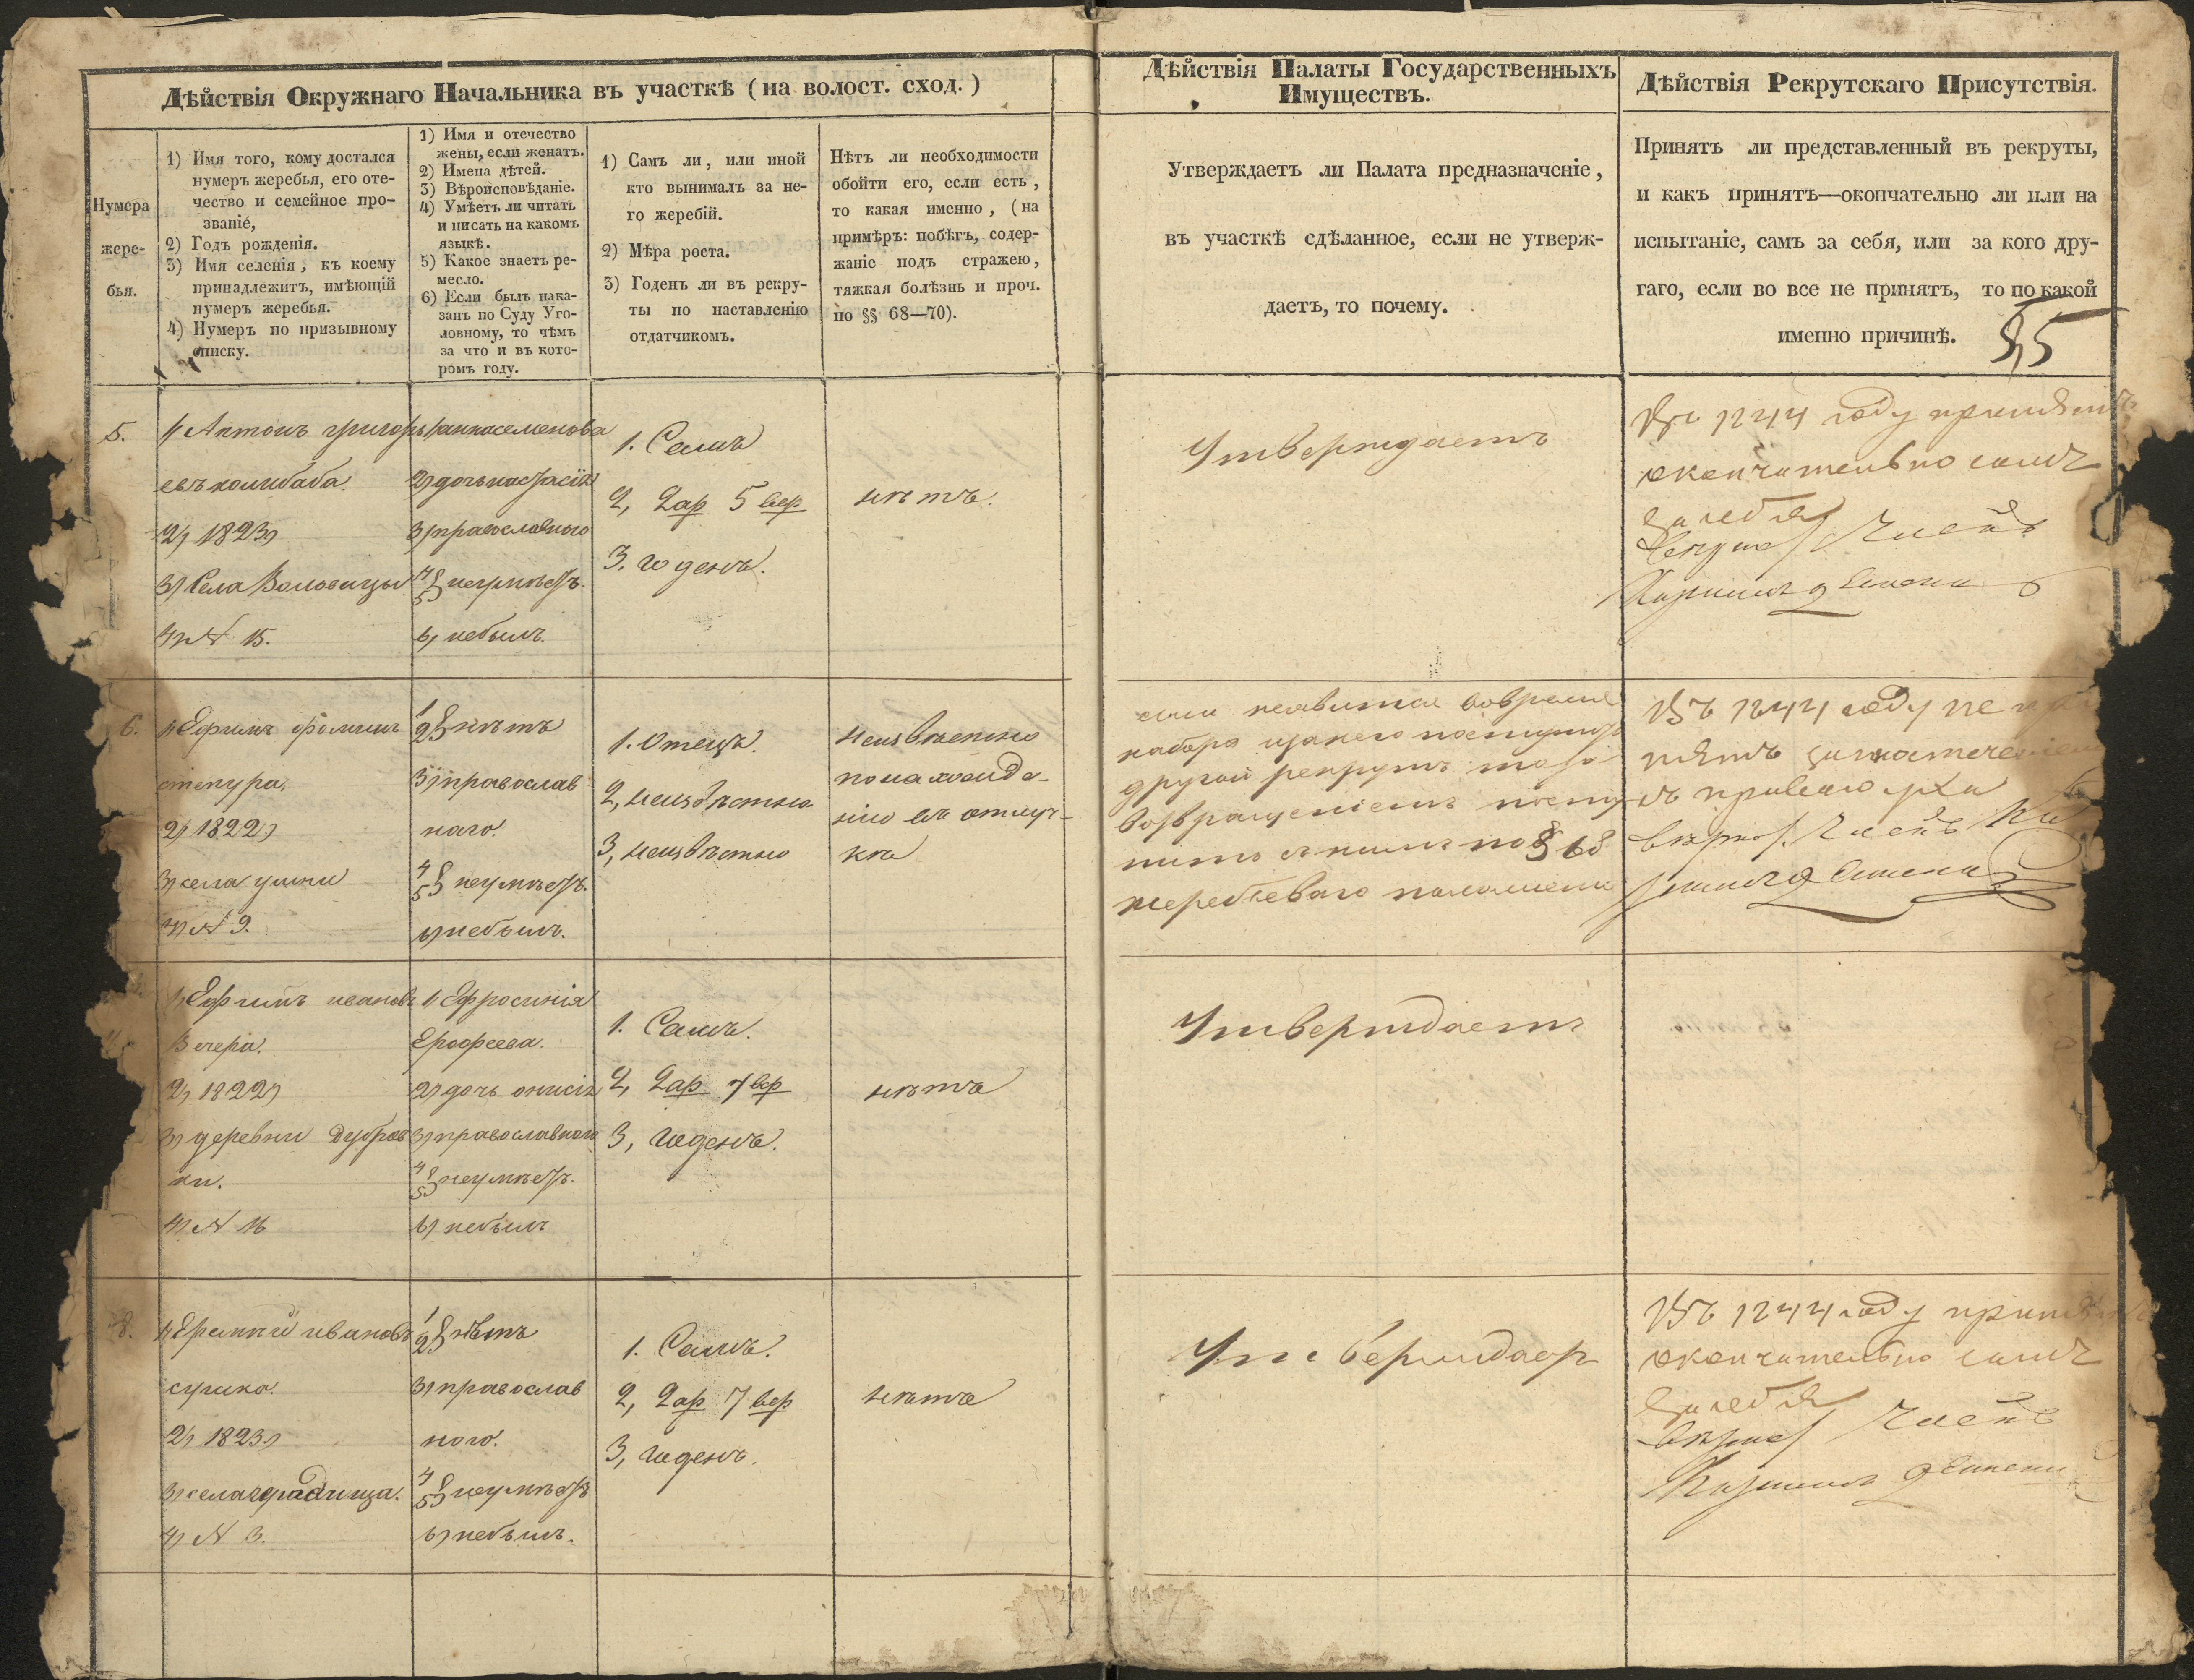 Дѣйствія Окружнаго Начальника въ участкѣ (на волост. сход.)
Нумера
жере-
бья.
1) Имя того, кому достался
нумеръ жеребья, его оте-
чество и семейное про-
званіе,
2) Годъ рожденія.
3) Имя селенія, къ коему
принадлежитъ, имѣющій
нумеръ жеребья.
4) Нумеръ по призывному
списку.
1) Имя и отечество
жены, если женатъ.
2) Имена дѣтей.
3) Вѣроисповѣданіе.
4) Умѣетъ ли читать
и писать на какомъ
языкѣ.
5) Какое знаетъ ре-
месло.
6) Если былъ нака-
занъ по Суду Уго-
ловному, то чѣмъ
за что и въ кото-
ромъ году.
1) Самъ ли, или иной
кто вынималъ за не-
го жеребій.
2) Мѣра роста.
3) Годенъ ли въ рекру-
ты по наставленію
отдатчикомъ.
Нѣтъ ли необходимости
обойти его, если есть,
то какая именно, (на
примѣръ: побѣгъ, содер-
жаніе подъ стражею,
тяжкая болѣзнь и проч.
по §§ 68—70).
Дѣйствія Палаты Государственныхъ
Имуществъ.
Утверждаетъ ли Палата предназначеніе,
въ участкѣ сдѣланное, если не утверж-
даетъ, то почему.
Дѣйствія Рекрутскаго Присутствія.
Принятъ ли представленный въ рекруты,
и какъ принятъ—окончательно ли или на
испытаніе, самъ за себя, или за кого дру-
гаго, если во все не принятъ, то по какой
именно причинѣ.
5.
1) Антонъ григорь
евъ колибаба.
2) 1823)
3) Села Воловицы
4) N 15.
1) анна семенова
2) дочь настасія
3) православного
4 5 } неумѣетъ.
6) небылъ.
1. Самъ
2, 2 ар 5 вер
3. годенъ.
нѣтъ.
Утверждаетъ
Въ 1844 году принятъ
окончательно самъ
за себя
Членъ
6.
1) Ефимъ фоминъ
2) 1822)
3) села
4) N 9.
1 2 } нѣтъ
3) православ
наго.
4 5 } неумѣетъ.
6) небылъ.
1. Отецъ.
2, неизвѣстно
3, неизвѣстно
неизвѣстно
по нахожде-
нію въ отлуч-
кѣ
если неявится вовремя
набора
другой рекрутъ
возвращеніемъ
съ нимъ по § 68
жеребьеваго положенія
Въ 1844 году не
Членъ
1) Ефимъ ивановъ
Вечера.
2) 1822)
3) деревни
ки.
4) N 16
1) Ефросинія
Ерофеева.
2) дочь онисія
3) православного
4 5 } неумѣетъ.
6) небылъ
1. Самъ.
2, 2 ар 7 вер
3, годенъ.
нѣтъ
Утверждаетъ
8.
ивановъ
2) 1823)
3) села
4) N 3.
1 2 } нѣтъ
3) православ
ного.
4 5 } неумѣетъ
6) небылъ.
1. Самъ.
2, 2 ар 7 вер
3, годенъ.
нѣтъ
Утверждаетъ
Въ 1844 году принятъ
окончательно самъ
за себя
Членъ